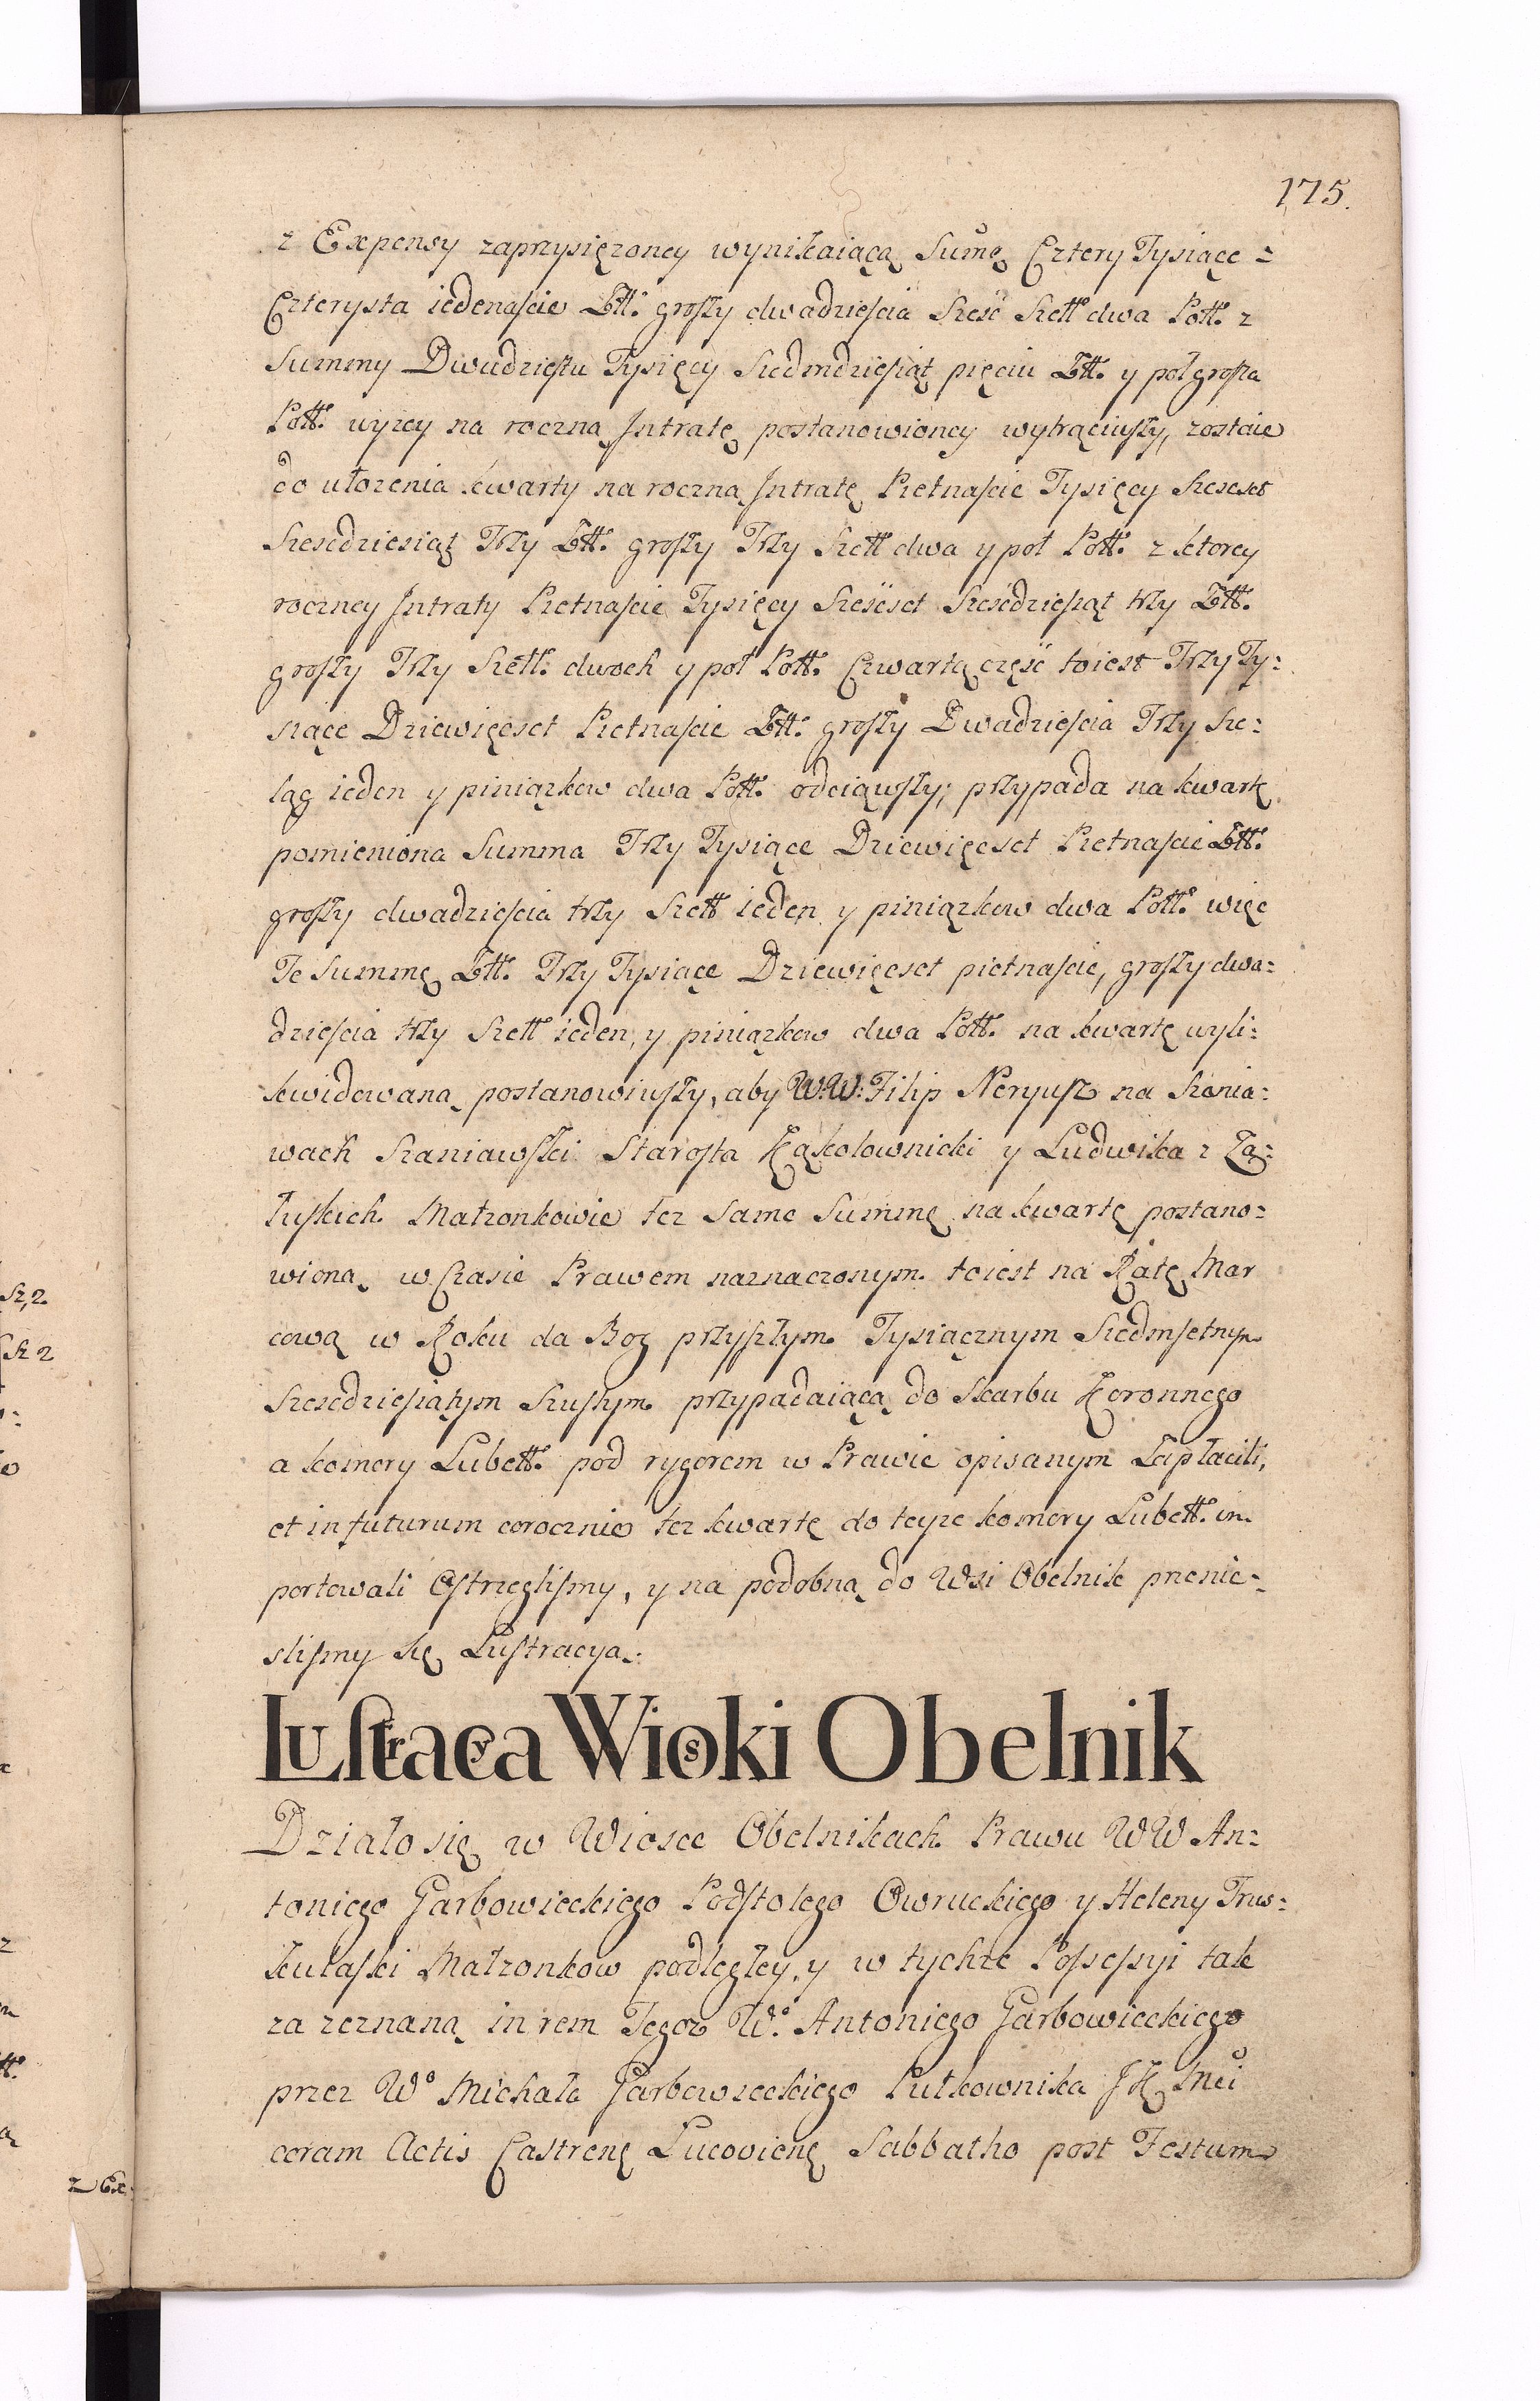 175.
z Expensy zaprzysięzoney wynikaiącą Sum̃ę Cztery Tysiące =
Czterysta iedenaście Złł. groszy dwadzieścia Sześć Szełł dwa Połł. z
Summy Dwudziestu Tysięcy Siedmdziesiąt pięciu Złł. y poł grosza
Połł. wyzey na roczną Intratę postanowioney wytrąciwszy, zostaie
do ułozenia kwarty na roczną Intratę Pietnaście Tysięcy Szescset
Szescdziesiąt Trzy Złł. groszy Trzy Szełł dwa y poł Połł. z ktorey
roczney Intraty Pietnaście Tysięcy Sześcset Sześcdziesiąt trzy Złł.
groszy Trzy Szełł: dwoch y poł Połł. Czwartą częśc toiest Trzy Ty=
siące Dziewięcset Pietnaście Złł. groszy Dwadzieścia Trzy Sze=
ląg ieden y piniązkow dwa Połł. odciąwszy; przypada na kwartę
pomieniona Summa Trzy Tysiące Dziewięcset Pietnaście Złł.
groszy dwadzieścia trzy Szełł ieden y piniązkow dwa Połł. więc
Te Summę Złł. Trzy Tysiące Dziewięcset pietnaście, groszy dwa=
dzieścia trzy Szełł ieden, y piniązkow dwa Połł. na kwartę wyli=
kwidowaną postanowiwszy, aby W.W. Filip Neryusz na Szania=
wach Szaniawski Starosta Kąkolownicki y Ludwika z Za=
łuskich Małzonkowie tez same Summę na kwartę postano=
wioną w Czasie Prawem naznaczonym toiest na Ratę Mar
cową w Roku da Bog przyszłym Tysiącznym Siedmsetnym
Szescdziesiątym Szustym przypadaiącą do Skarbu Koronnego
a komory Lubełł. pod rygorem w Prawie opisanym Zapłacili,
et in futurum corocznie tez kwartę do teyze komory Lubełł. in
portowali Ostrzeglismy, y na podobną do Wsi Obelnik przenie=
slismy się Lustracyą.
Lustracya Wioski Obelnik
Działo się w Wiosce Obelnikach Prawu WW An=
toniego Garbowieckiego Podstolego Owruckiego y Heleny Trus=
kulaski Małzonkow podległey, y w tychze Possessyi tak
za zeznaną in rem Tegoz W.º Antoniego Garbowieckiego
przez Wº Michała Garbowieckiego Pułkownika JK Mci
coram Actis Castrenę Lucovienę Sabbatho post Festum